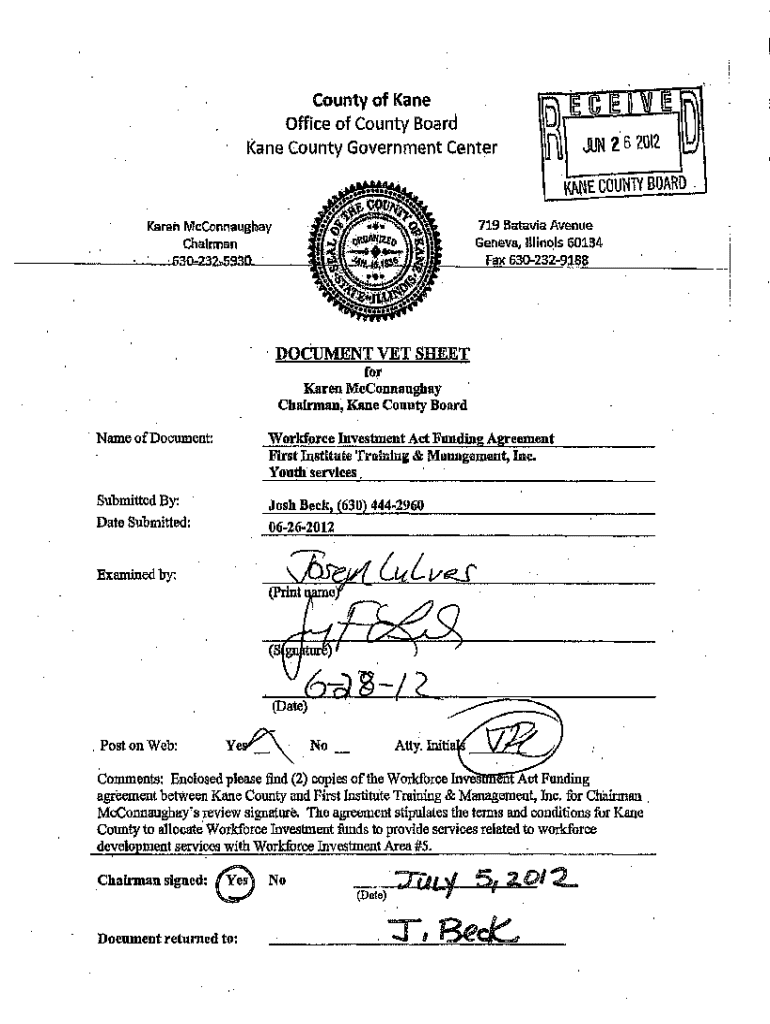 County of Kane
Office of County Board
Kane County Government Center
RECEIVED
JUN 26 2012
KANE COUNTY BOARD
Karen McConnaughay
Chairman
630-232-5930
SEAL OF THE COUNTY OF KANE
ORGANIZED
JAN. 16, 1836
STATE ILLINOIS
719 Batavia Avenue
Geneva, Illinois 60134
Fax 630-232-9188
DOCUMENT VET SHEET
for
Karen McConnaughay
Chairman, Kane County Board
Name of Document: Workforce Investment Act Funding Agreement
First Institute Training & Management, Inc.
Youth services
Submitted By: Josh Beck, (630) 444-2960
Date Submitted: 06-26-2012
Examined by: Joseph Lulves
(Print name)
(Signature)
6-28-12
(Date)
Post on Web: Yes No Atty. Initials
Comments: Enclosed please find (2) copies of the Workforce Investment Act Funding
agreement between Kane County and First Institute Training & Management, Inc. for Chairman
McConnaughay's review signature. The agreement stipulates the terms and conditions for Kane
County to allocate Workforce Investment funds to provide services related to workforce
development services with Workforce Investment Area #5.
Chairman signed: Yes No July 5, 2012
(Date)
Document returned to: J. Beck